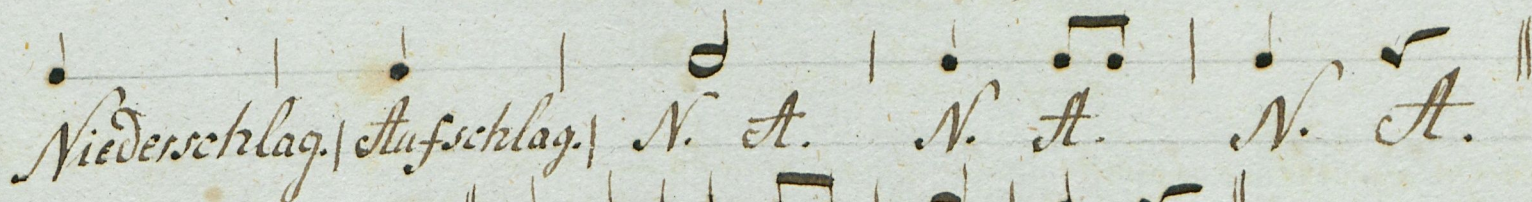 Niederschlag. | Aufschlag. | N. A. N. A. N. A.